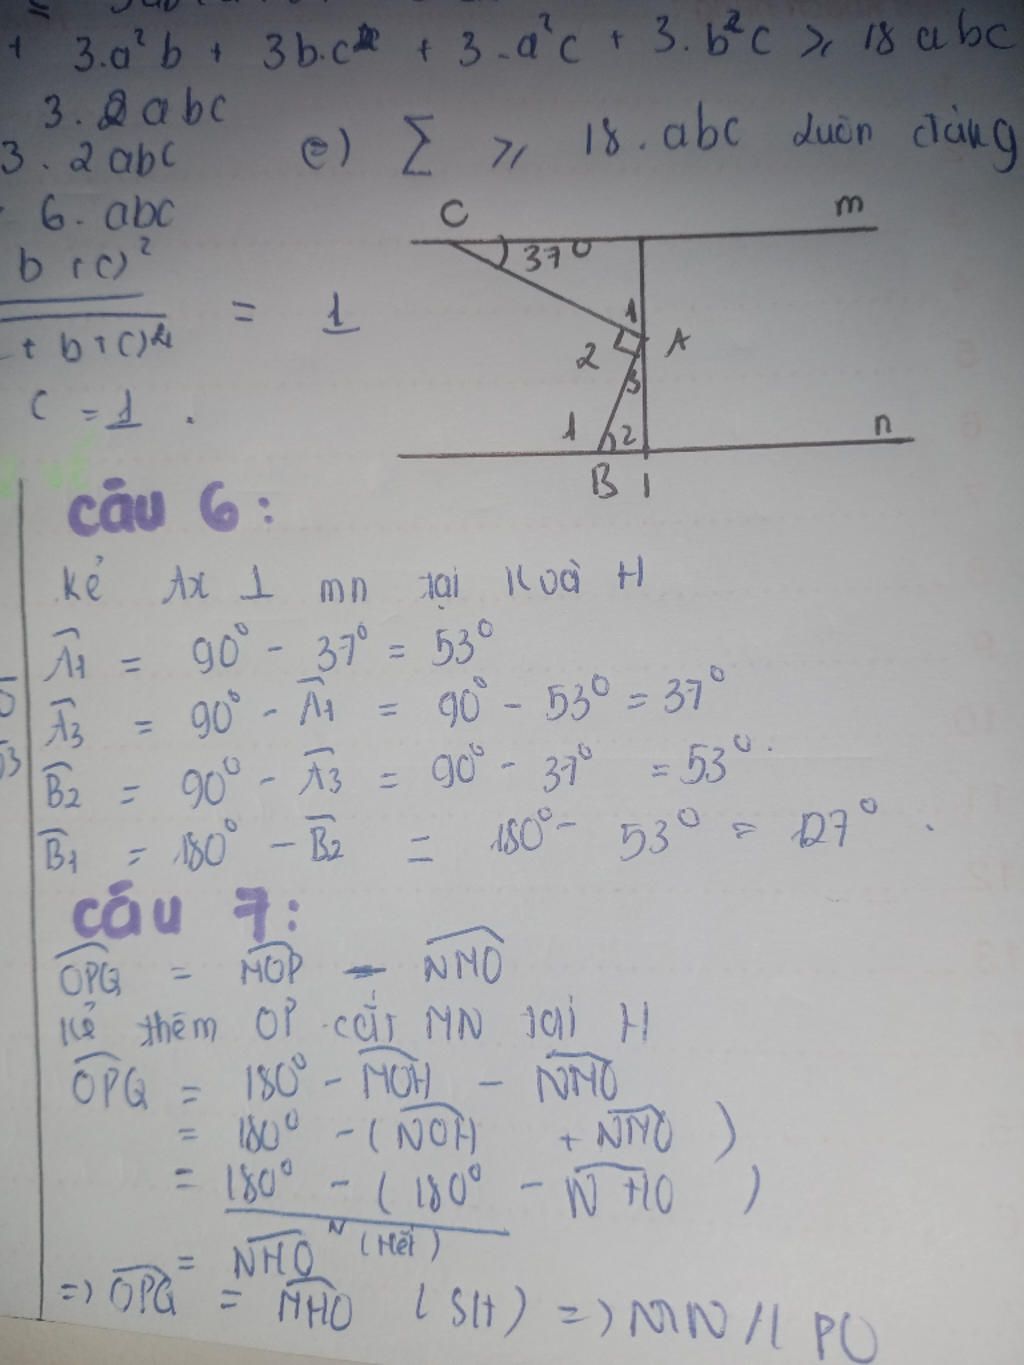 + 3.a²b + 3b.c² + 3.a²c + 3.b²c ≥ 18abc
3.2abc
3.2abc
e) Σ ≥ 18.abc luôn đúng
6.abc
b+c)²
+b+c)² = 1
c = 1.
C m
37°
1
2 A
3
1 2 n
B I
câu 6:
Kẻ Ax ⊥ mn tại K và H
Â1 = 90° - 37° = 53°
Â3 = 90° - Â1 = 90° - 53° = 37°
B̂2 = 90° - Â3 = 90° - 37° = 53°.
B̂1 = 180° - B̂2 = 180° - 53° = 127°.
câu 7:
OPQ = MOP - NMO
Kẻ thêm OP cắt MN tại H
OPQ = 180° - MOH - NMO
= 180° - (NOH + NMO)
= 180° - (180° - NHO)
= NHO (Hết)
=> OPQ = MHO (slt) => MN // PQ